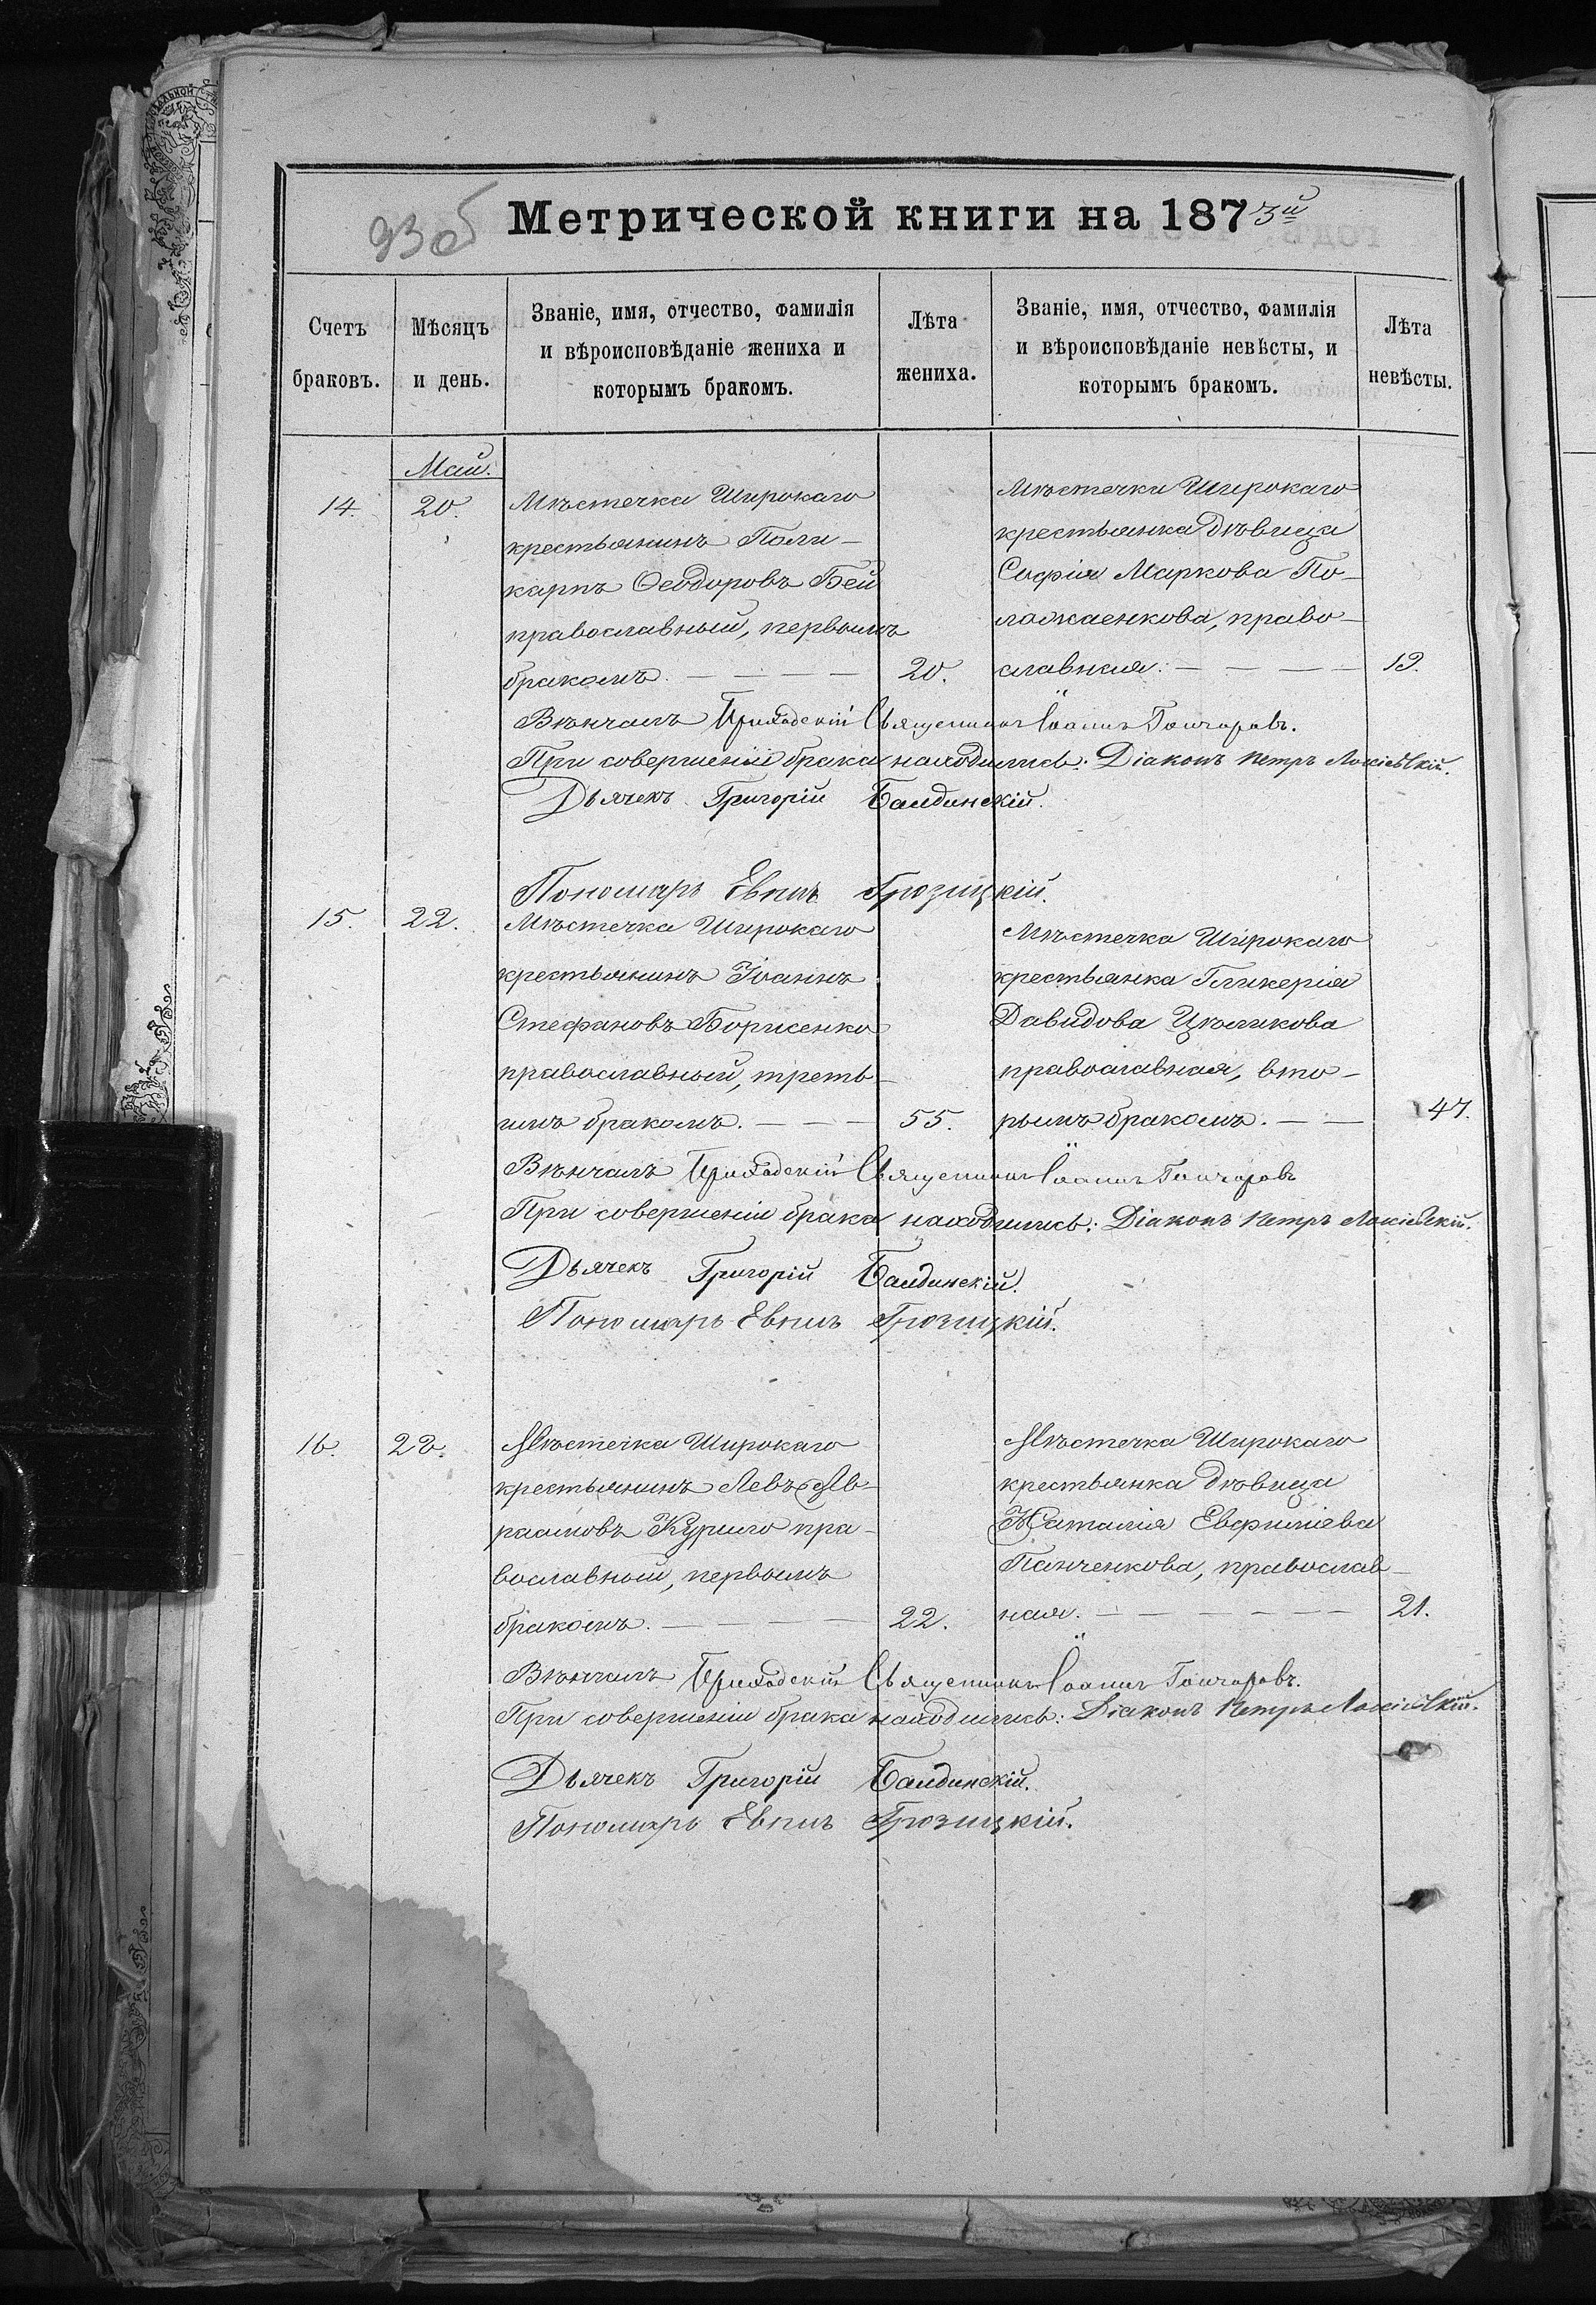 93об
Метрической книги на 1873й
Счетъ браковъ.
Мѣсяцъ и день.
Званіе, имя, отчество, фамилія
и вѣроисповѣданіе жениха и
которымъ бракомъ.
Лѣта жениха.
Званіе, имя, отчество, фамилія
и вѣроисповѣданіе невѣсты, и
которымъ бракомъ.
Лѣта невѣсты.
Май.
14. 20.
Мѣстечка Широкаго
крестьянинъ Поли-
карпъ Ѳеодоровъ Бей
православный, первымъ
бракомъ. — — — — 20.
Мѣстечка Широкаго
крестьянка дѣвица
Софія Маркова По-
ложаенкова, право-
славная. — — — — 19.
Вѣнчалъ Приходскій Священникъ Іоаннъ Гончаровъ.
При совершеніи брака находились: Діаконъ Петръ
Дьячекъ Григорій Балдинскій.
Пономарь Евплъ Грозицкій.
15. 22.
Мѣстечка Широкаго
крестьянинъ Іоаннъ
Стефановъ Борисенко
православный, треть-
имъ бракомъ. — — — 55.
Мѣстечка Широкаго
крестьянка Гликерія
Давидова Цѣликова
православная, вто-
рымъ бракомъ. — — 47.
Вѣнчалъ Приходскій Священникъ Іоаннъ Гончаровъ
При совершеніи брака находились: Діаконъ Петръ
Дьячекъ Григорій Балдинскій.
Пономарь Евплъ Грозицкій.
16. 22.
Мѣстечка Широкаго
крестьянинъ Левъ Ав-
раамовъ Курило пра-
вославный, первымъ
бракомъ. — — — — 22.
Мѣстечка Широкаго
крестьянка дѣвица
Наталія Евфиміева
Панченкова, православ-
ная. — — — — — — 21.
Вѣнчалъ Приходскій Священникъ Іоаннъ Гончаровъ.
При совершеніи брака находились: Діаконъ Петръ
Дьячекъ Григорій Балдинскій.
Пономарь Евплъ Грозицкій.